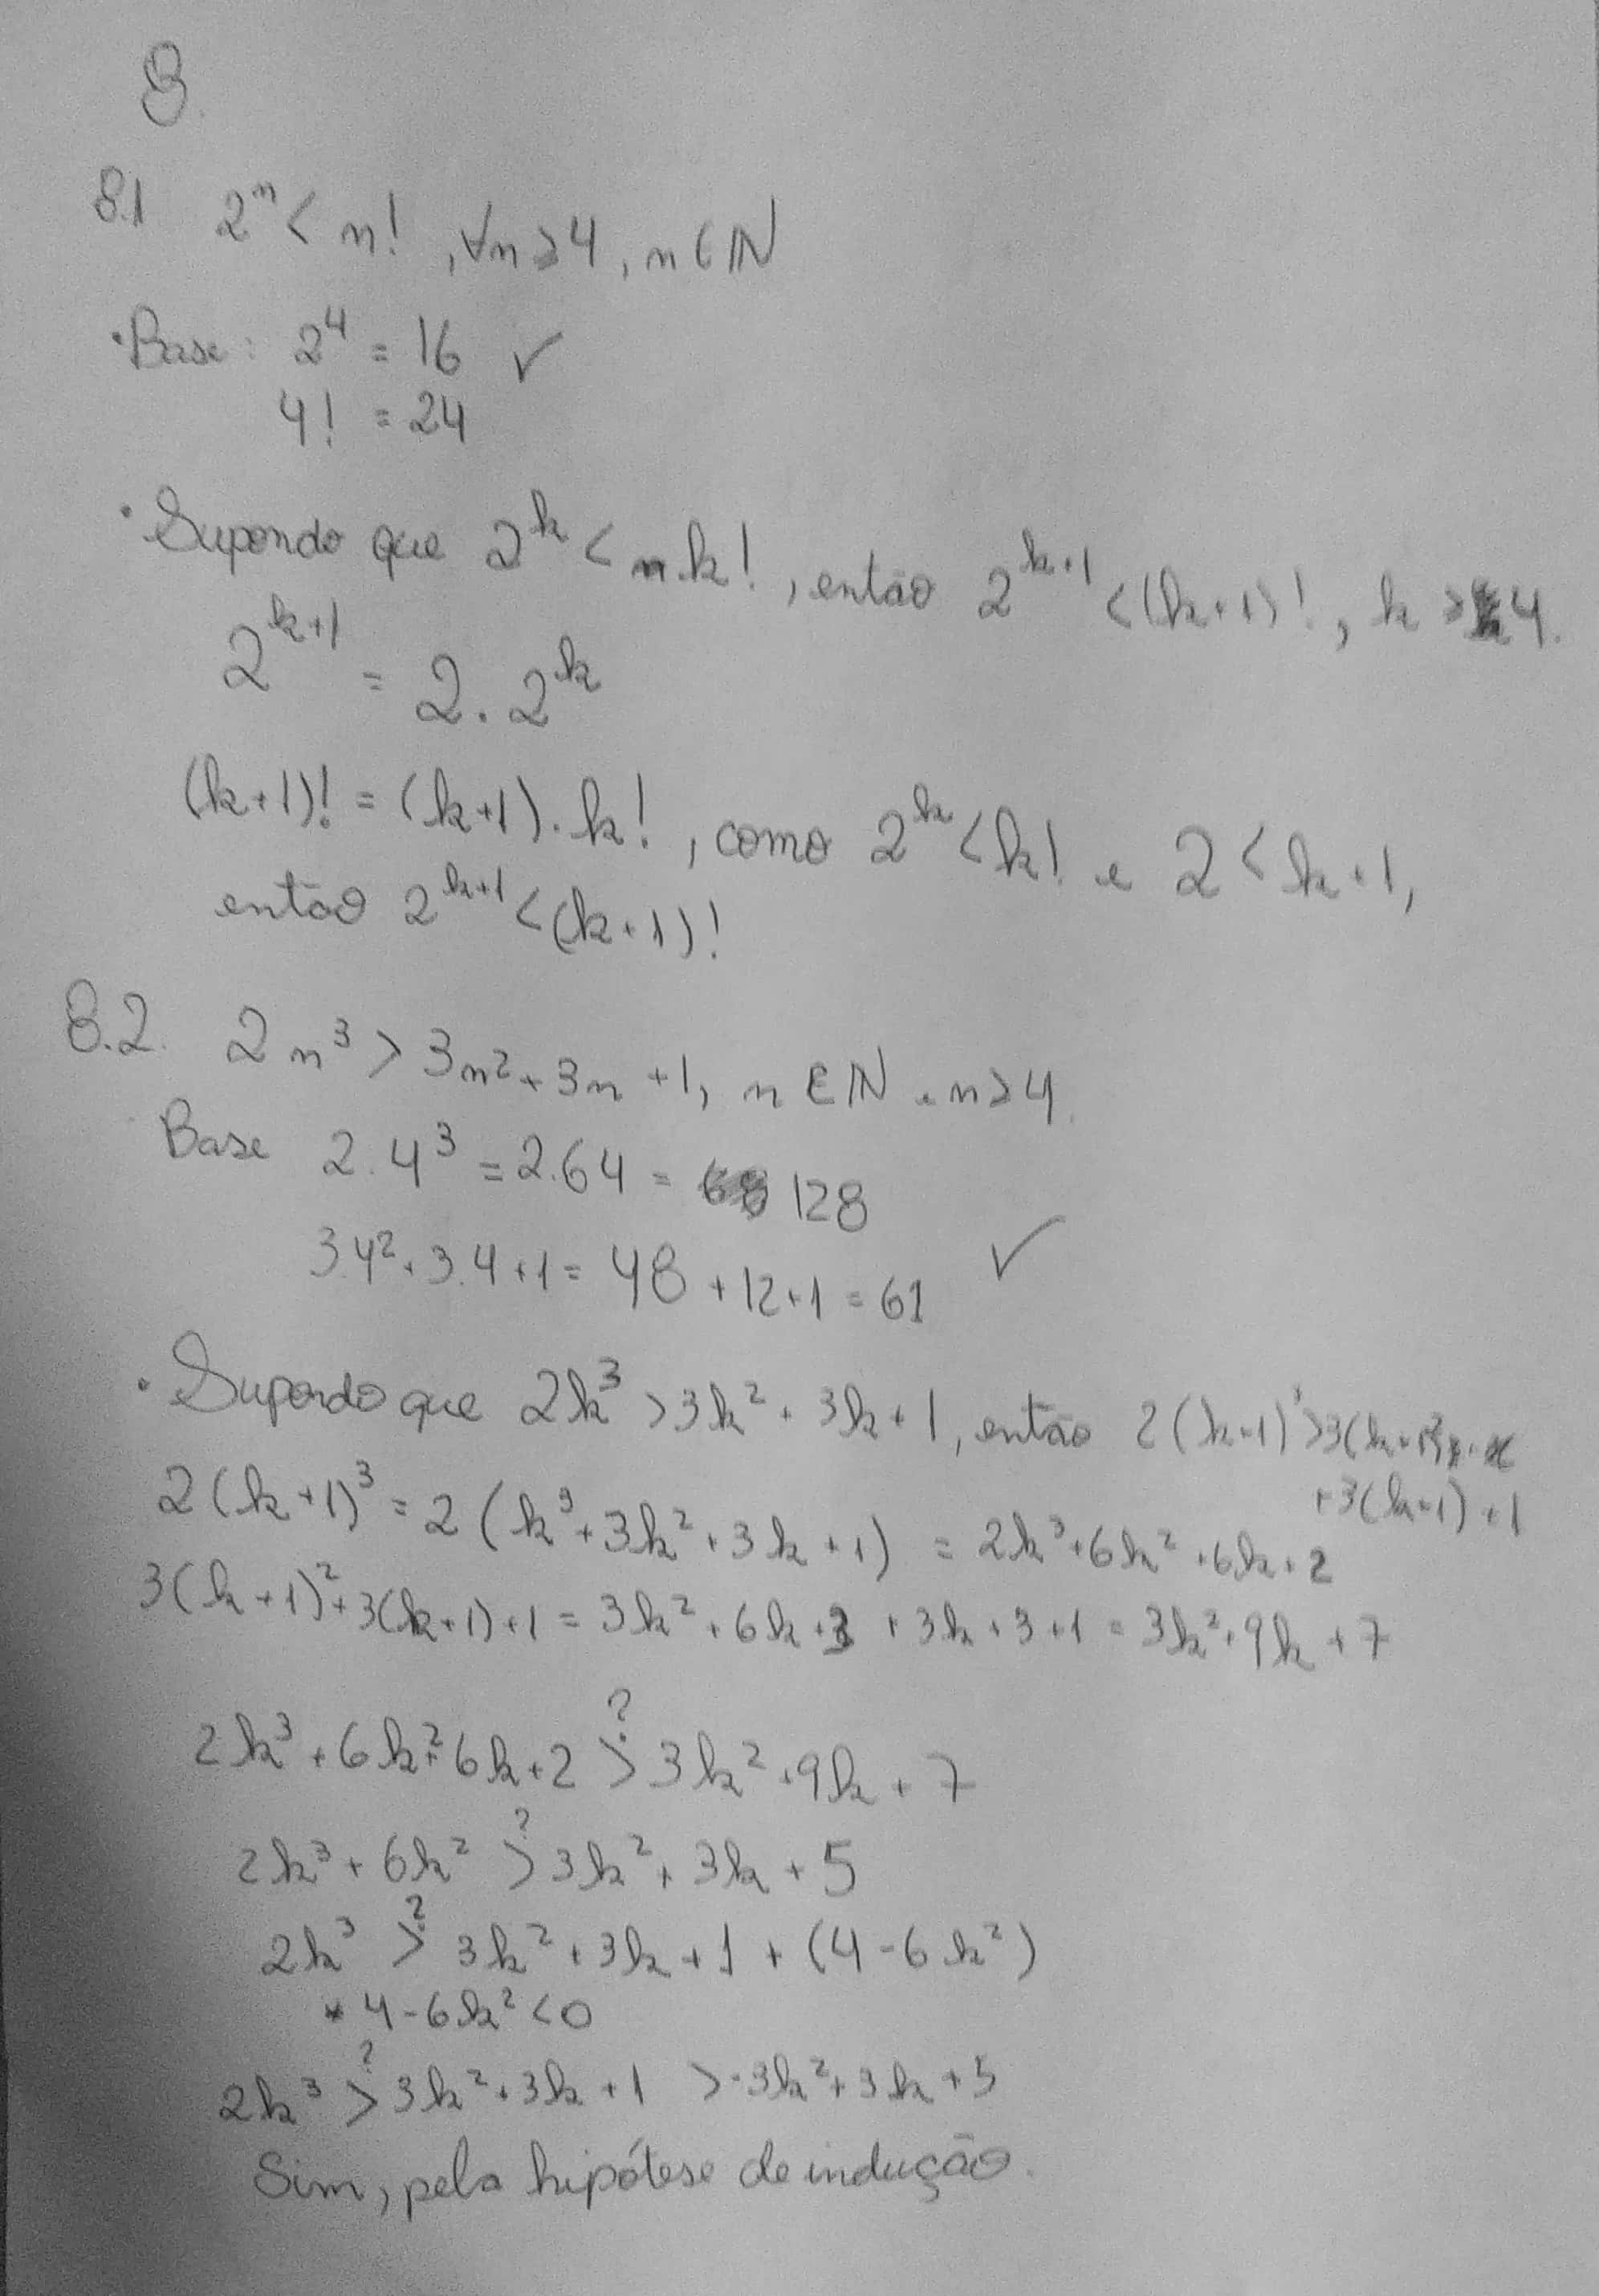 8.
8.1 2^n < n! , ∀n ≥ 4, n ∈ ℕ
• Base: 2^4 = 16 ✓
4! = 24
• Supondo que 2^k < k!, então 2^(k+1) < (k+1)!, k ≥ 4.
2^(k+1) = 2 . 2^k
(k+1)! = (k+1) . k! , como 2^k < k! e 2 < k+1,
então 2^(k+1) < (k+1)!
8.2. 2n³ > 3n² + 3n + 1, n ∈ ℕ e n ≥ 4.
Base 2.4³ = 2.64 = 128
3.4² + 3.4 + 1 = 48 + 12 + 1 = 61 ✓
• Supondo que 2k³ > 3k² + 3k + 1, então 2(k+1)³ > 3(k+1)²
+ 3(k+1) + 1
2(k+1)³ = 2(k³ + 3k² + 3k + 1) = 2k³ + 6k² + 6k + 2
3(k+1)² + 3(k+1) + 1 = 3k² + 6k + 3 + 3k + 3 + 1 = 3k² + 9k + 7
2k³ + 6k² + 6k + 2 >? 3k² + 9k + 7
2k³ + 6k² >? 3k² + 3k + 5
2k³ >? 3k² + 3k + 1 + (4 - 6k²)
* 4 - 6k² < 0
2k³ >? 3k² + 3k + 1 > -3k² + 3k + 5
Sim, pela hipótese de indução.